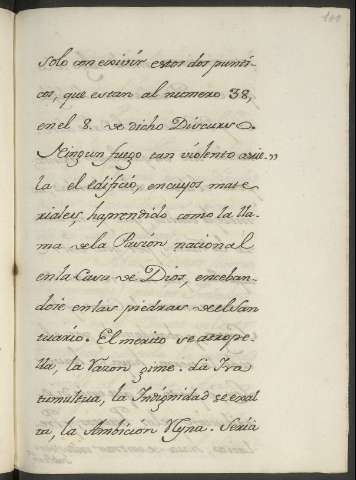 solo con exivír estos dos puntí-
cos, que estan al numero 38,
en el 8. de dicho Discurso.
Ningun fuego tan violento asue-"
la el edificio, en cuyos mate
riales, ha prendido como la lla-
ma de la Pasión nacional
en la Casa de Dios, enceban-
dose en las piedras del San
tuario. El merito se atrope-
lla, la Razon gime. La Ira
tumultua, la Indignidad se exal
ta, la Ambición Reyna. Sería